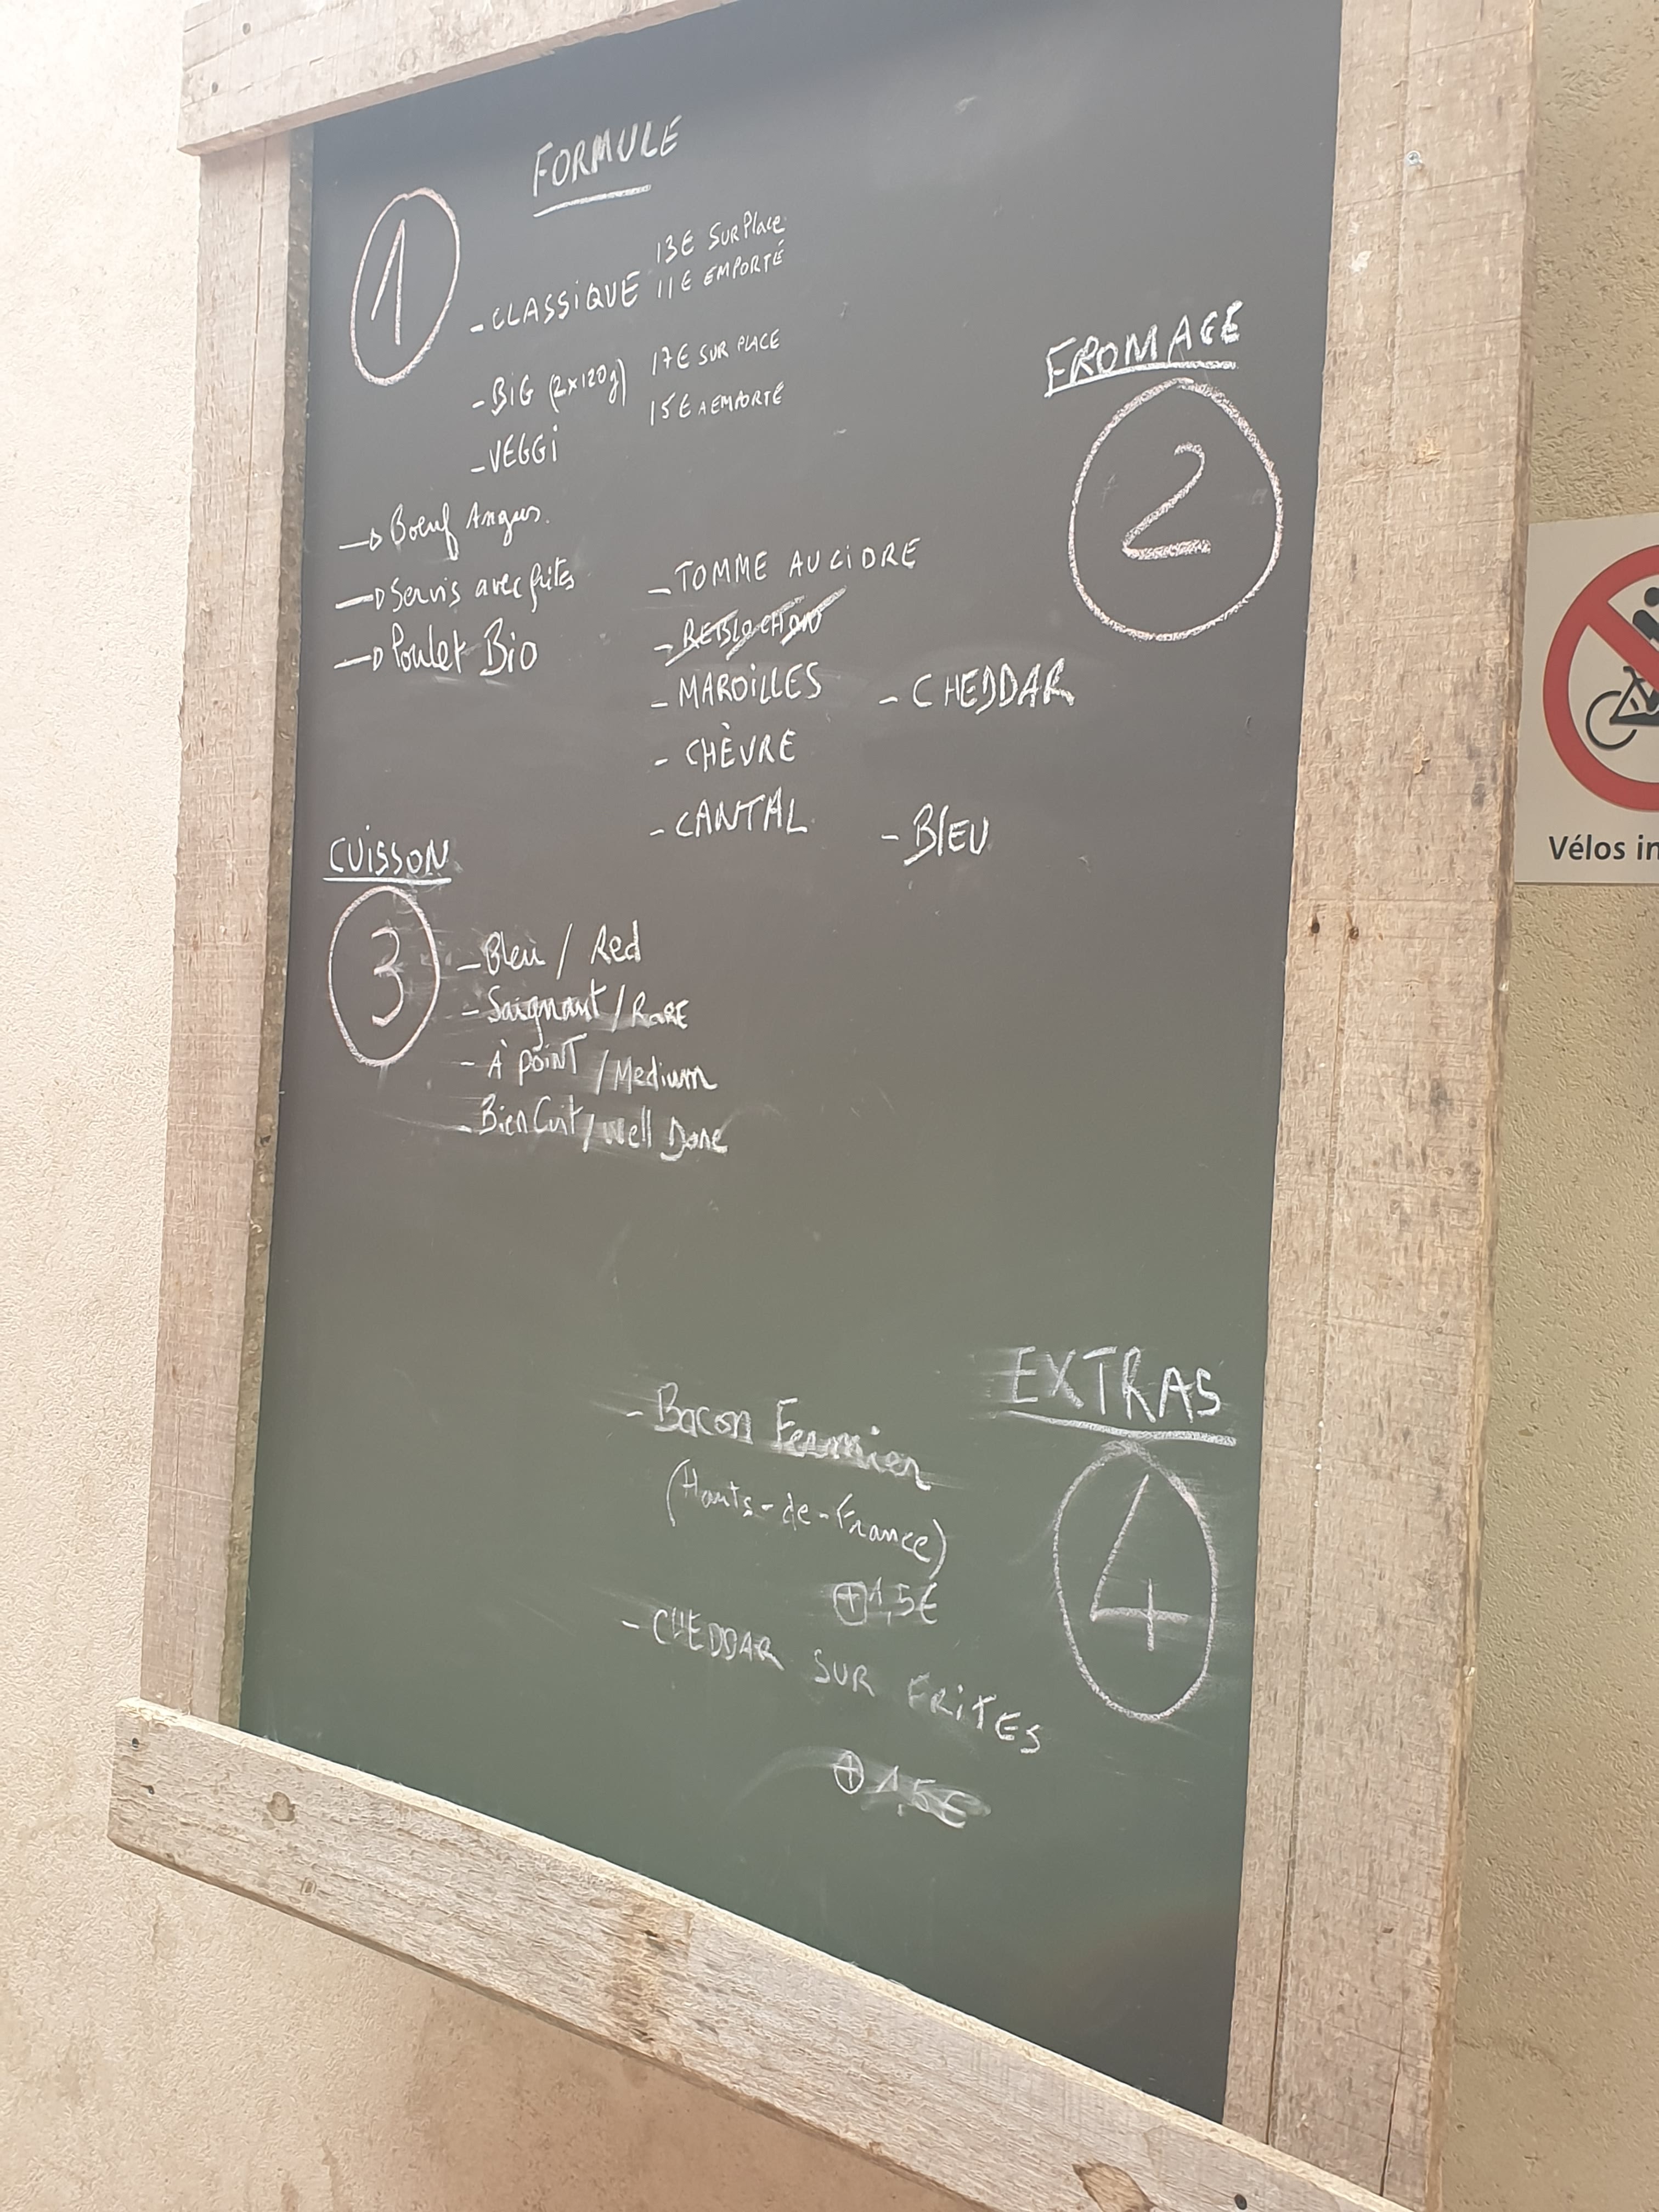 FORMULE
1
- CLASSIQUE 13€ Sur Place
11€ EMPORTÉ
- BiG (2x120g) 17€ SUR PLACE
15€ A EMPORTÉ
- VEGGi
→ Boeuf Angus.
→ Servis avec frites
→ Poulet Bio
FROMAGE
2
- TOMME AU CiDRE
- REBLOCHON
- MAROiLLES - CHEDDAR
- CHÈVRE
- CANTAL - BlEU
CUiSSON
3
- Bleu / Red
- Saignant / RaRE
- À POiNT / Medium
- Bien Cuit / Well Done
EXTRAS
4
- Bacon Fermier
(Hauts-de-France)
+ 1,5€
- CHEDDAR SUR FRiTES
+ 1,5€
Vélos in